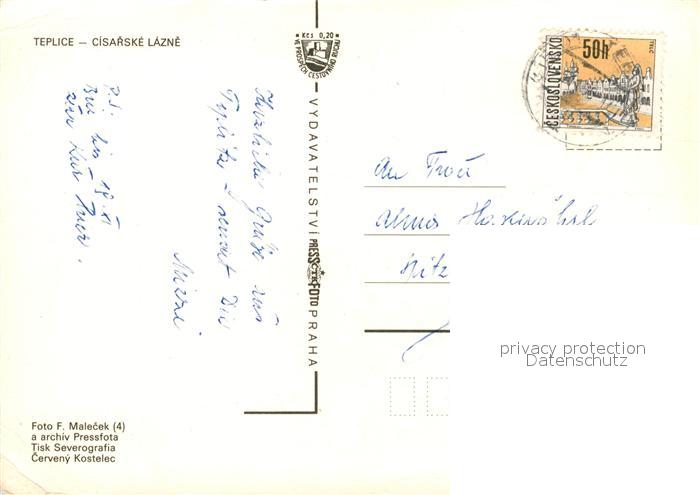 TEPLICE — CÍSAŘSKÉ LÁZNĚ
Kčs 0,20
VE PROSPĚCH CESTOVNÍHO RUCHU
VYDAVATELSTVÍ PRESSFOTO PRAHA
ČTK
50h
ČESKOSLOVENSKO
TELČ
Herzliche Grüße aus
Teplitz sendet Dir
Mizzi
P.S.
Bin bis 19. XI
zur Kur hier.
An Frau
Alma
privacy protection
Datenschutz
Foto F. Maleček (4)
a archív Pressfota
Tisk Severografia
Červený Kostelec